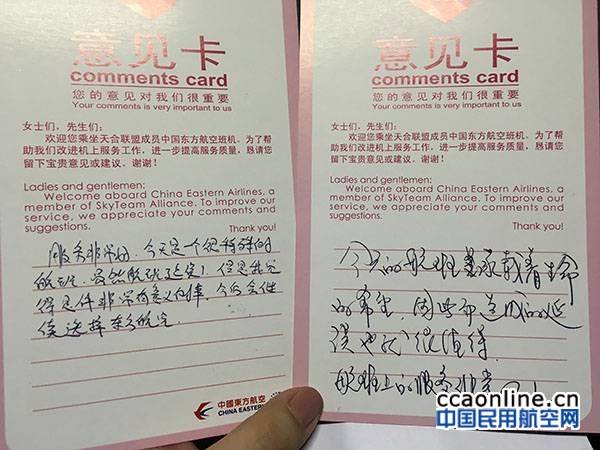 意见卡
comments card
您的意见对我们很重要
Your comments is very important to us
女士们，先生们：
欢迎您乘坐天合联盟成员中国东方航空班机。为了帮
助我们改进机上服务工作，进一步提高服务质量，恳请您
留下宝贵意见或建议。谢谢！
Ladies and gentlemen:
Welcome aboard China Eastern Airlines, a
member of SkyTeam Alliance. To improve our
service, we appreciate your comments and
suggestions.
Thank you!
服务非常好，今天是一个很特殊的
航班，虽然航班延误了，但是我觉
得是件非常有意义的事，今后会继
续选择东方航空
中國東方航空
CHINA EASTERN
意见卡
comments card
您的意见对我们很重要
Your comments is very important to us
女士们，先生们：
欢迎您乘坐天合联盟成员中国东方航空班机。为了
帮助我们改进机上服务工作，进一步提高服务质量，恳请您
留下宝贵意见或建议。谢谢！
Ladies and gentlemen:
Welcome aboard China Eastern Airlines, a
member of SkyTeam Alliance. To improve our
service, we appreciate your comments and
suggestions.
Thank you!
今天的航班承载着生命
的希望，因此而造成的延
误也很值得
航班上的服务非常
ccaonline.cn
中国民用航空网